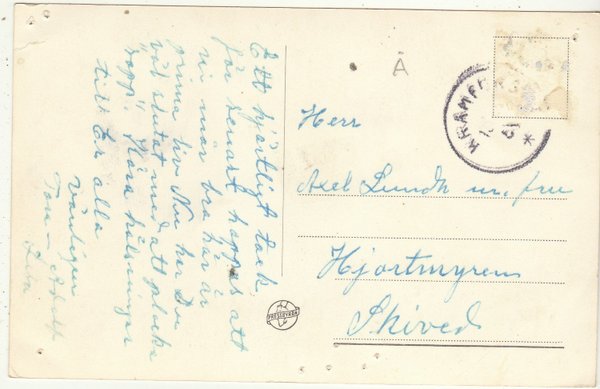 Ett hjärtligt tack
för senast hoppas att
ni mår bra här är
prima liv Nu har Du
väl slutat med att plocka
"kopp". Kära hälsningar
till Er alla
vänligen
Tora Adolf
Å
KRAMF
Herr
Axel Lundh m. fru
Hjortmyren
Skived